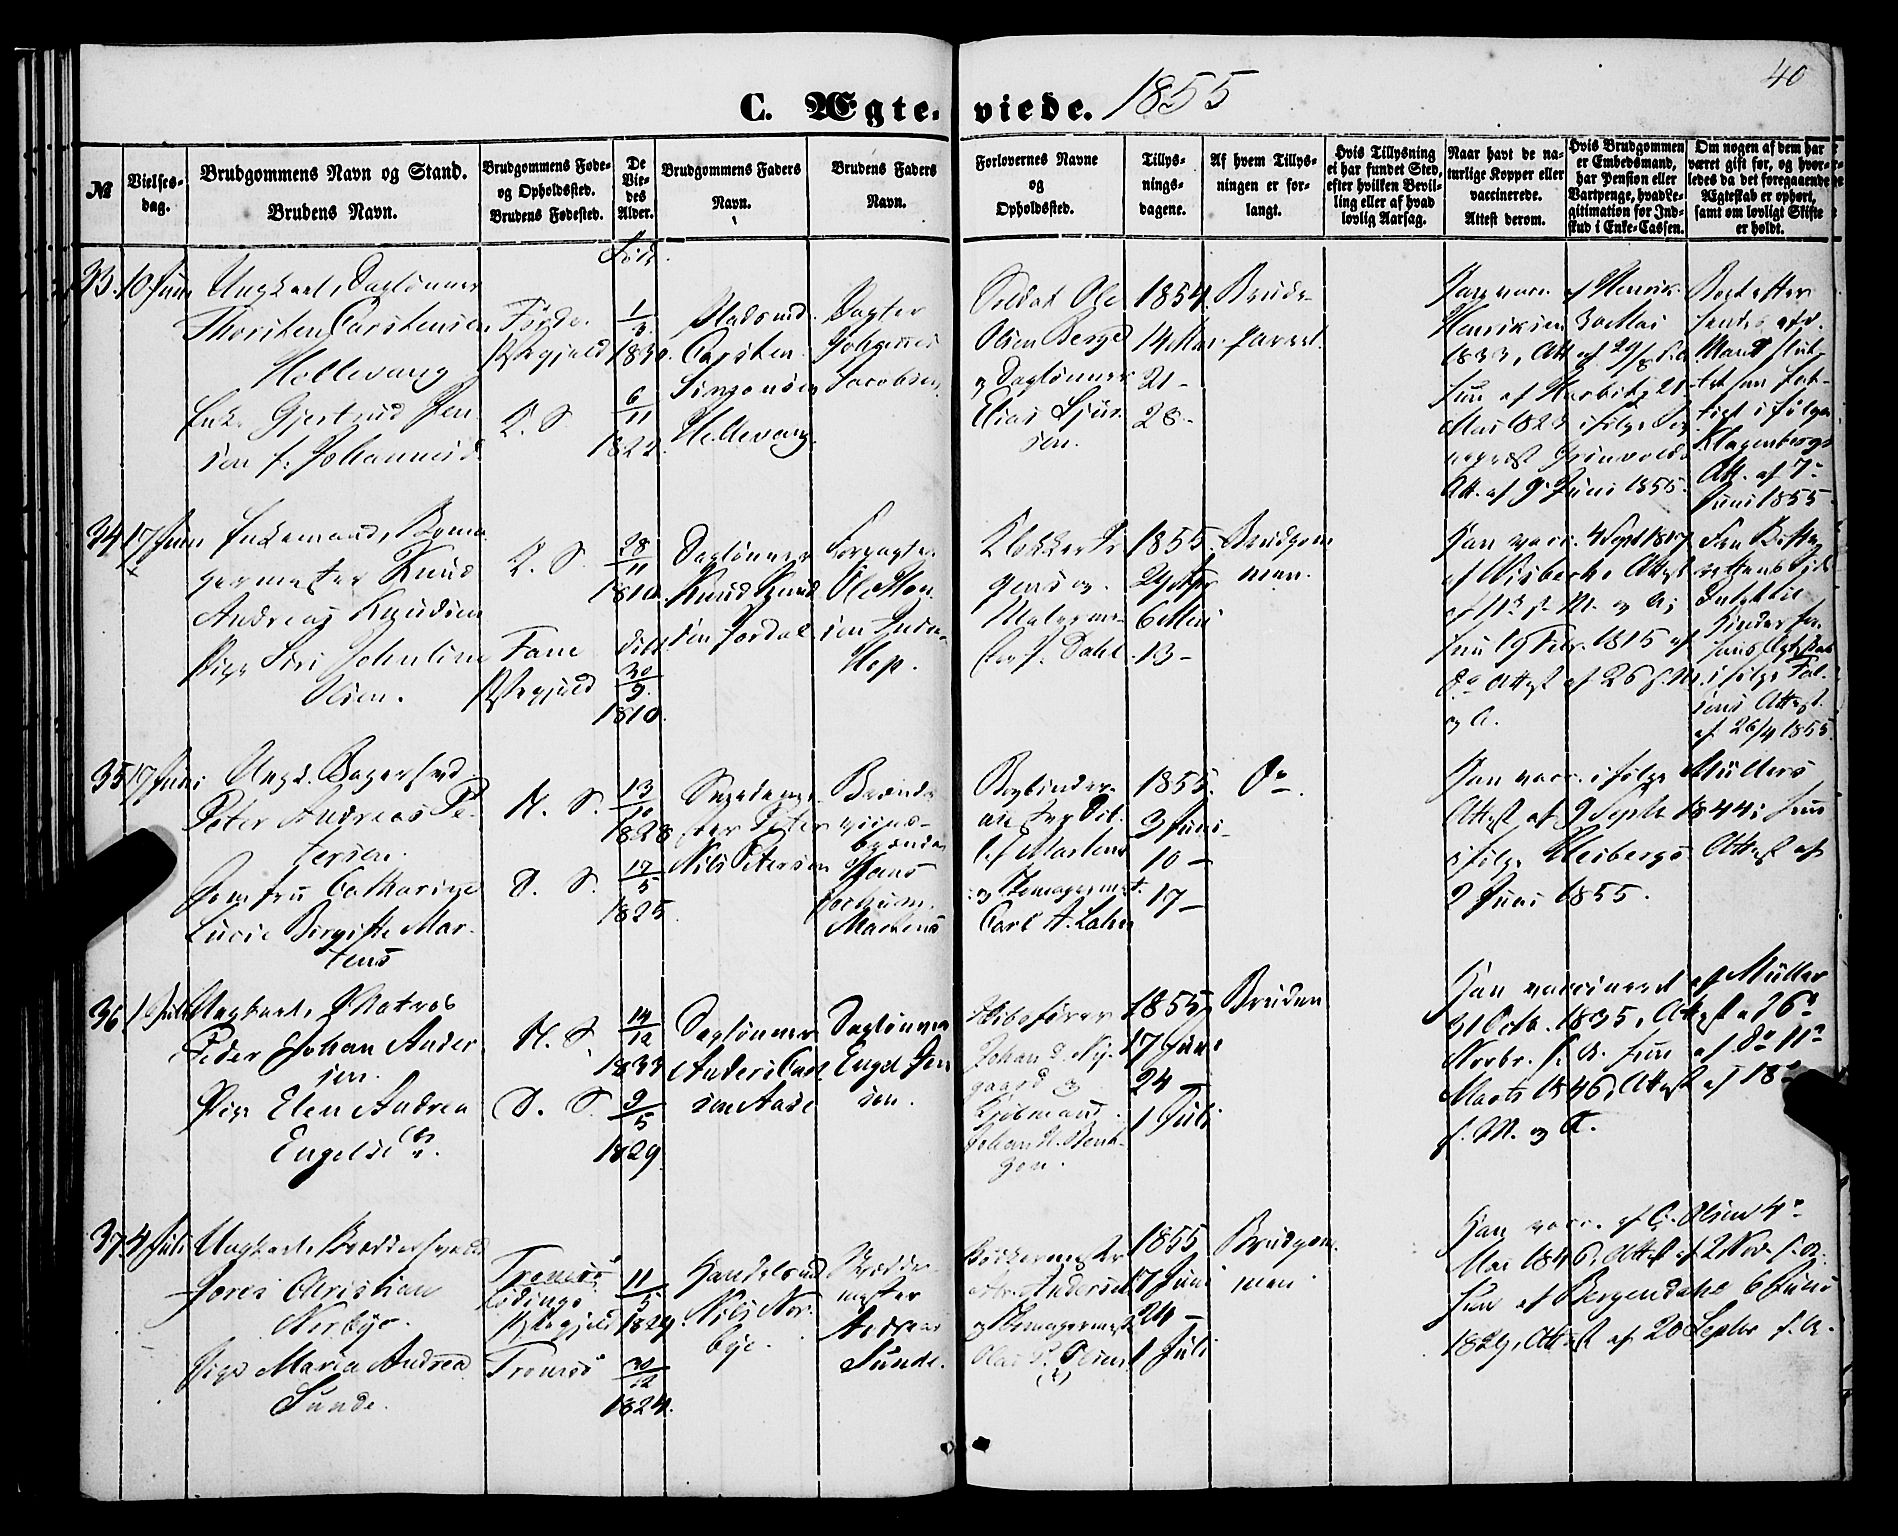 40
C. Ægte-viede. 1855
№
Vielses-
dag.
Brudgommens Navn og Stand.
Brudens Navn.
Brudgommens Føde-
og Opholdssted.
Brudens Fødested.
De
Vie-
des
Alder.
Brudgommens Faders
Navn.
Brudens Faders
Navn.
Forlovernes Navne
og
Opholdssted.
Tillys-
nings-
dagene.
Af hvem Tillys-
ningen er for-
langt.
Hvis Tillysning
ei har fundet Sted,
efter hvilken Bevil-
ling eller af hvad
lovlig Aarsag.
Naar havt de na-
turlige Kopper eller
vaccinerede.
Attest derom.
Hvis Brudgommen
er Embedsmand,
har Pension eller
Vartpenge, hvad Le-
gitimation for Ind-
skud i Enke-Cassen.
Om nogen af dem har
været gift før, og hvor-
ledes da det foregaaende
Ægteskab er ophørt,
samt om lovligt Skifte
er holdt.
33. 10 Juni
Ungkarl, Daglønner
Thorsten Carstensen
Hellevang
Enke Gjertrud Jen-
sen f. Johannesd.
Førde
Pr.gjeld
D. S.
Født
1/3
1830.
6/11
1822.
Pladsmd.
Carsten
Simonsen
Hellevang.
Johannes
Jacobsen
Soldat Ole
Olsen Berge
og Daglønner
Elias Sjur-
sen.
1854.
14 Mai
21 –
28 –
Brude-
parret.
Han vacc. af Henrik
Henriksen 30 Mai
1833, Att. af 29/8
Hun af Harbitz 21
Mai 182 ifølge
Grønvolds
Att. af 9 Juni 1855.
Klagenbergs
Att. af 7de
Juni 1855
34. 17 Juni
Enkemand,
germester Knud
Andreas Knudsen
Pige Siri Johnline
Olsen.
D. S.
Fane
Pr.gjeld
28/11
1810.
døbt
30/9
1810.
Daglønner
Knud Knud-
sen Jordal
Ole Mon-
sen
Hop.
Klokker
gens og
Malerme-
ster J. Dahl.
1855.
29 Apr
6 Mai
13 –
Brudgom-
men.
Han vacc. 4 Sept 1817
af Wisbech, Attest
af 13 f. M. og A;
hun 19 Febr. 1815 af
do Attest af 26 f. M.
og A.
ifølge Fal-
sens Attest
af 26/4 1855.
35. 17 Juni
Ungk. Bagersvd.
Peter Andreas Pe-
tersen.
Jomfru Catharine
Lucie Birgitte Mar-
tens
N. S.
D. S.
13/10
1828
17/5
1825.
Peter
Nils Petersen
Brænde-
viins-
brænder
Hans
Jochum
Martens
Bogbinder-
mester Dit-
lef Martens
og Skomagermst.
Carl A. Lahn
1855.
3 Juni
10 –
17 –
Do.
Han vacc. ifølge Müllers
Attest af 9 Septbr 1844; hun
ifølge Heibergs Attest af
2 Juni 1855.
36. 1 Juli
Ungkarl, Matros
Peder Johan Ander-
sen.
Pige Elen Andrea
Engelsen.
N. S.
D. S.
14/12
1833
9/5
1829.
Daglønner
Anders Carl-
sen Aase
Daglønner
Engel Jen-
sen.
Skibsfører
Johan d. Ny-
gaard og
Kjøbmand
Johan H. Bent-
zon.
1855,
17 Juni
24 –
1 Juli
Bruden
Han vaccineret af Müller
31 Octb. 1835, Attest af 6te
Novbr. f. A. hun af do 11te
Marts 1846, Attest af 18de
f. M. og A.
37. 4 Juli
Ungkarl, Bødkersvend
Jores Christian
Norbye.
Pige Maria Andrea
Sunde.
Tromsø
Lødinge
Pr.gjeld
Tromsø
11/5
1829.
30/12
1824.
Handelsmd
Nils Nor-
bye.
Bødker-
mester
Andreas
Sunde.
Bødkermester
Andersen
og Skomagermst.
Olai P. Olsen
1855
17 Juni
24 –
1 Juli
Brudgom-
men
Han vacc. af C. Olsen 4de
Mai 1846, Attest af 2 Nov. f. A.
Hun af Bergendahl 6 Juni
1829, Attest af 20 Septbr f. A.